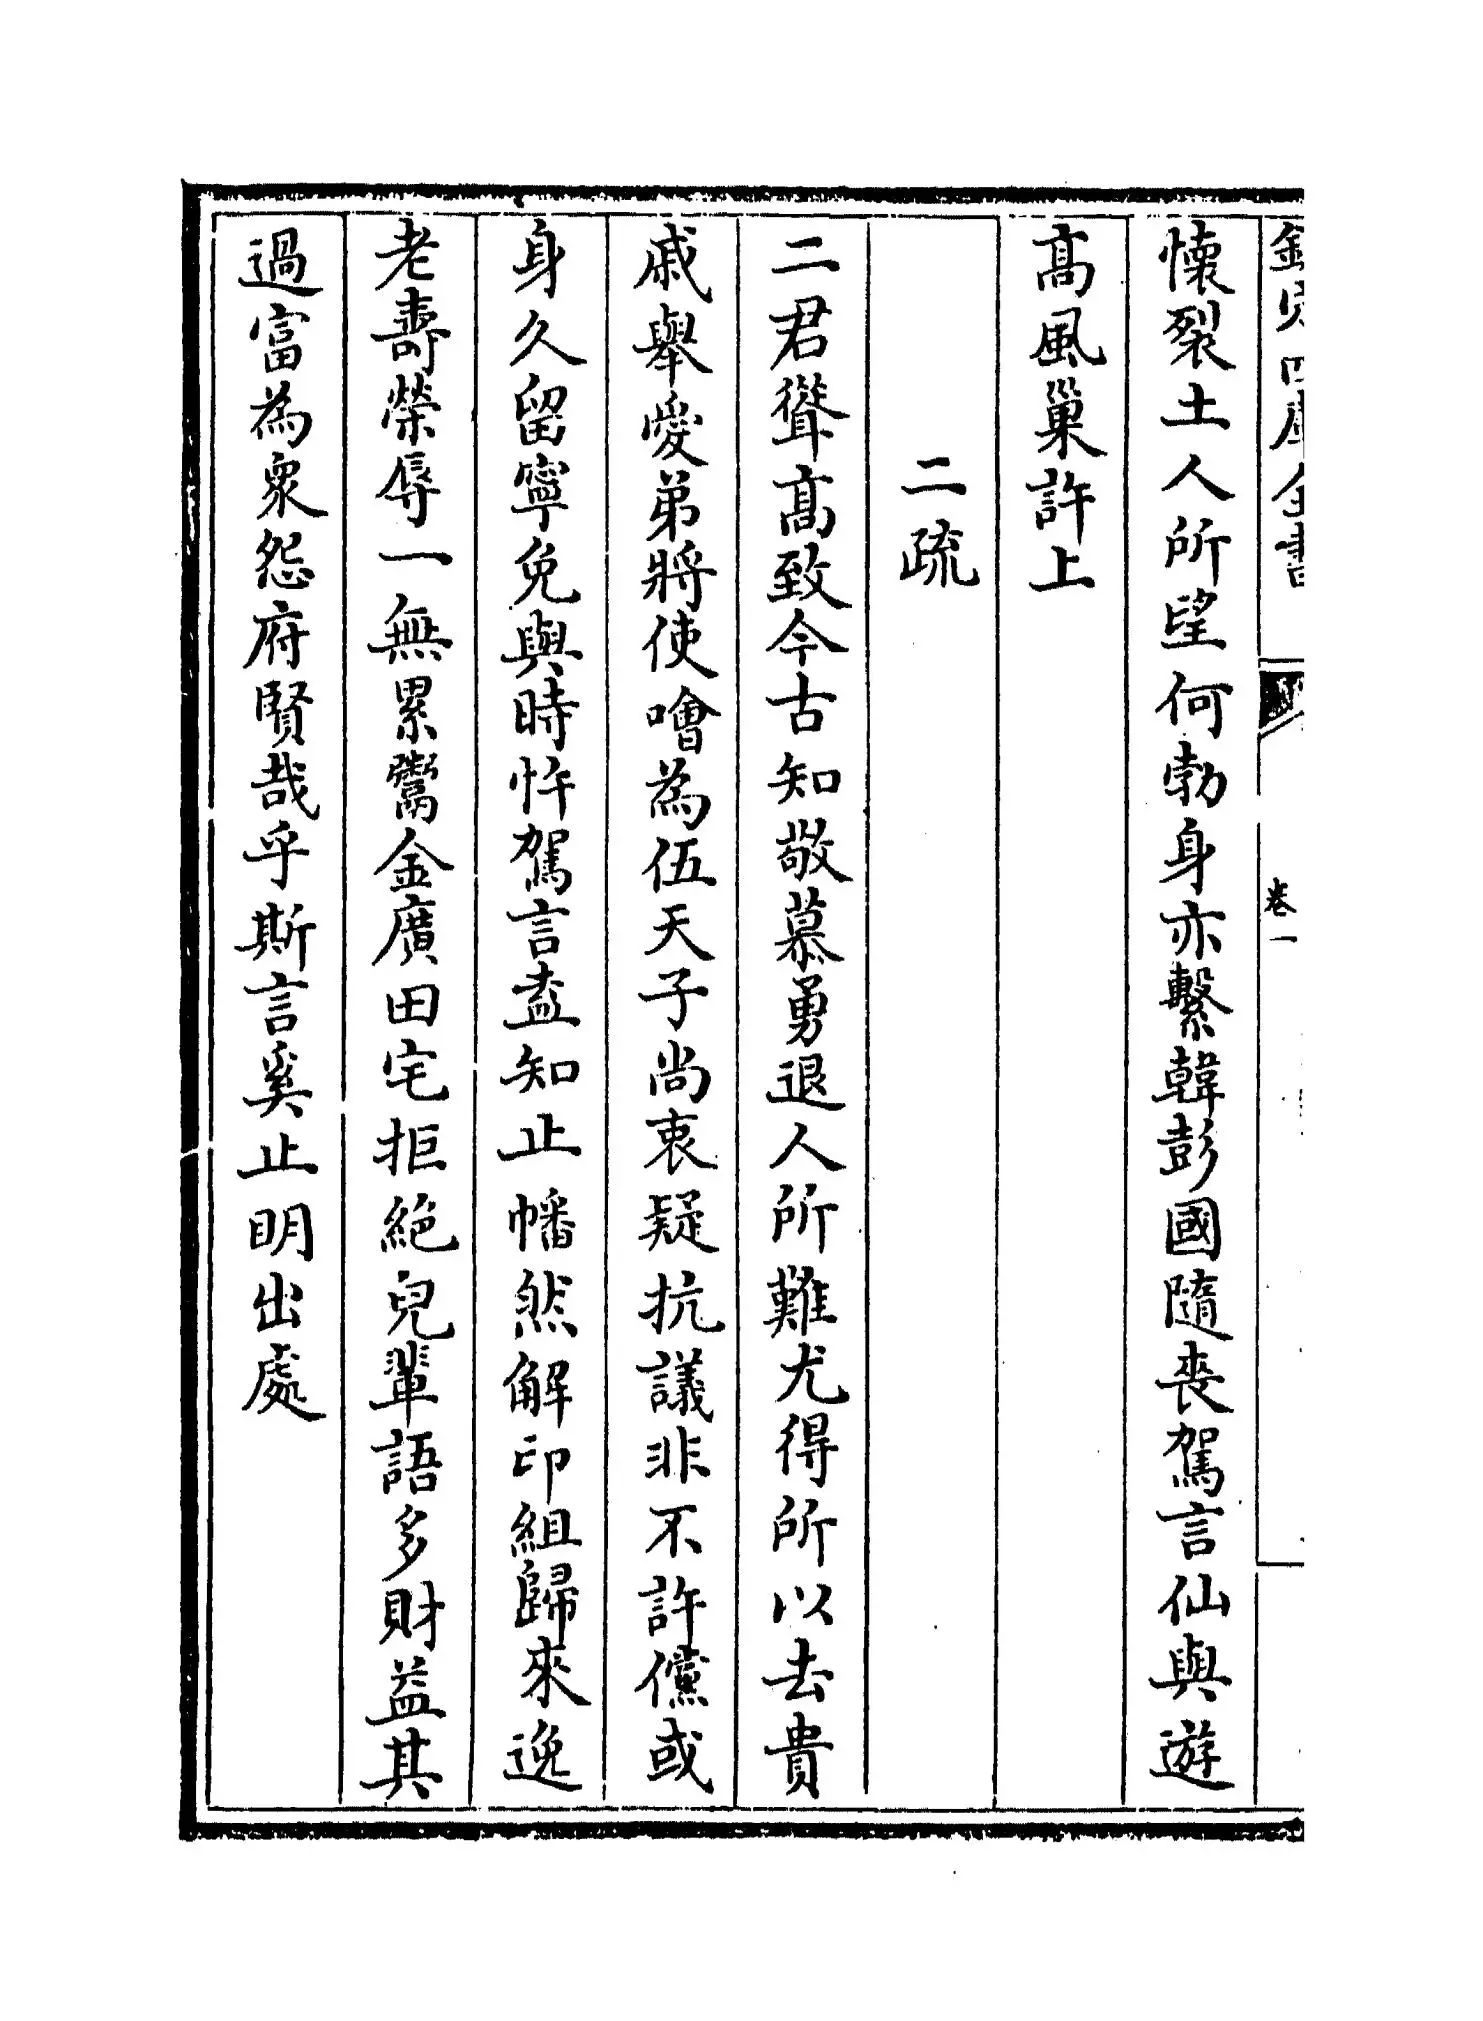 欽定四庫全書
卷一
懷裂土人所望何勃身亦繫韓彭國隨喪駕言仙與遊
髙風巢許上
二疏
二君聳髙致今古知敬慕勇退人所難尤得所以去貴
戚舉愛弟將使噲為伍天子尚衷疑抗議非不許儻或
身久留寧免與時忤駕言盍知止幡然解印組歸來逸
老壽榮辱一無累鬻金廣田宅拒絶兒軰語多財益其
過富為衆怨府賢哉乎斯言奚止明出處